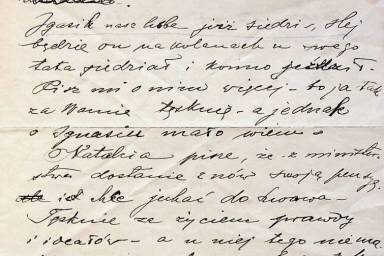 Igasik nasz lube już siedzi, Hej
będzie on na kolanach u swego
tata siedział i konno jeździł.
Pisz mi o nim więcej - bo ja tak
za Wami tęsknię - a jednak
o Ignasiu mało wiem.
Natalia pisze, że z minister
stwa dostanie znów swoją pensję
i chce jechać do Lwowa -
Tęsknię za życiem prawdy
i ideałów - a u niej tego niema.